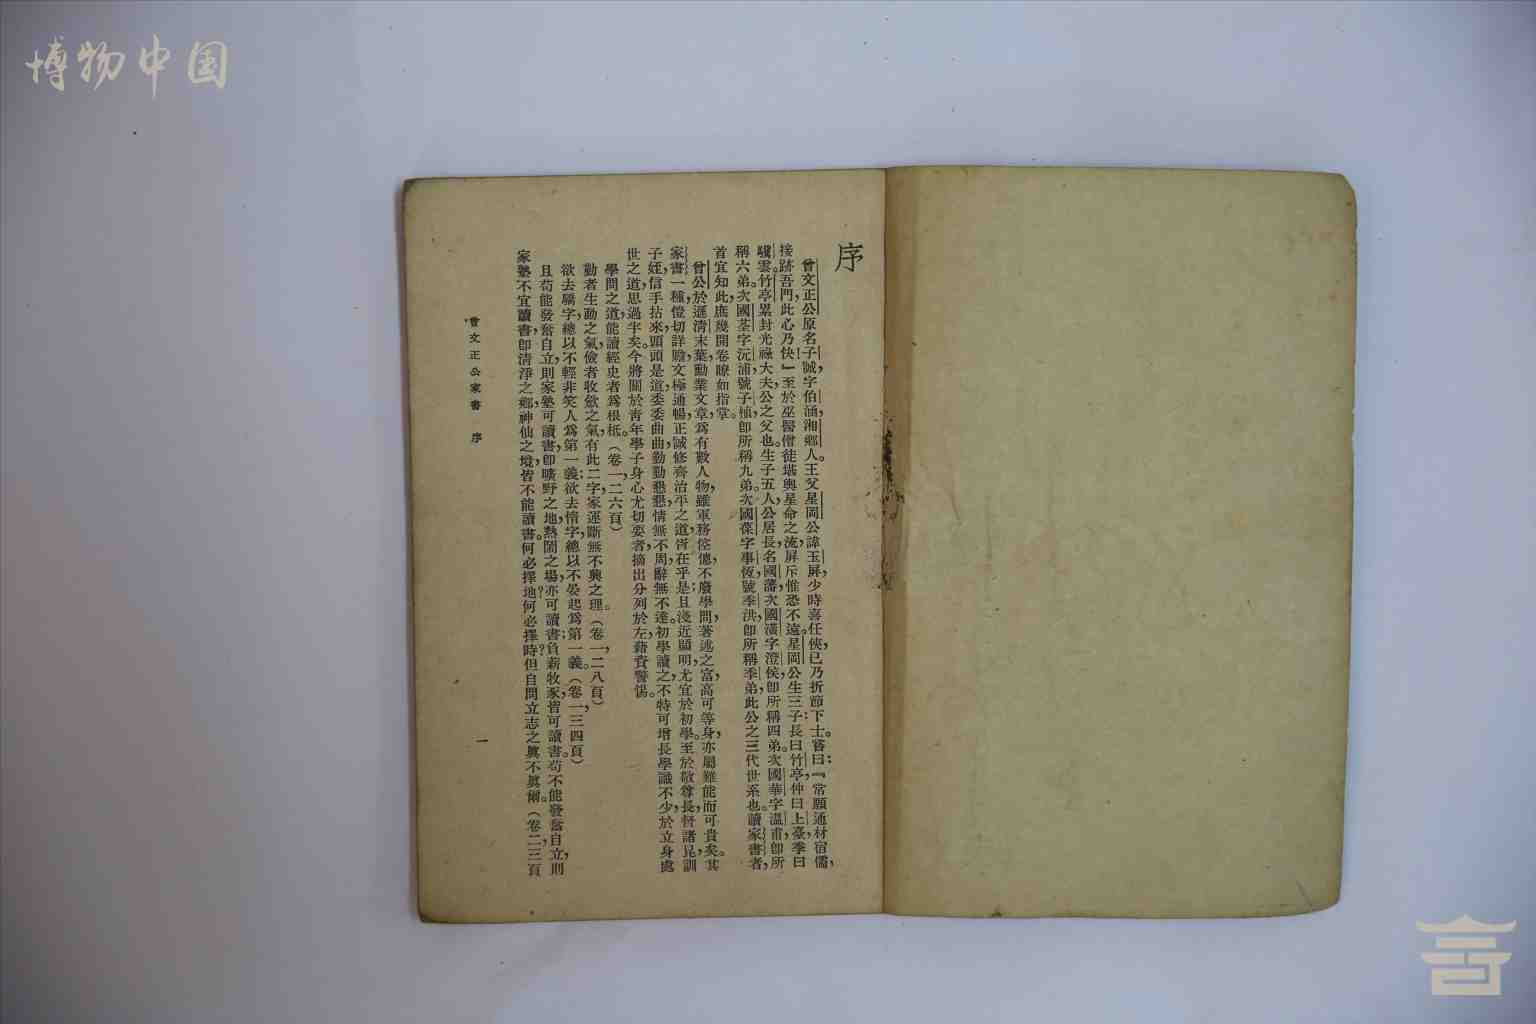 博物中国
序
曾文正公原名子誠,字伯涵,湘鄉人。王父星岡公諱玉屏,少時喜任俠,已乃折節下士。嘗曰:『常願通材宿儒,
接跡吾門,此心乃快!』至於巫醫僧徒堪輿星命之流,屏斥惟恐不遠。星岡公生三子:長曰竹亭,仲曰上臺,季曰
驥雲。竹亭累封光祿大夫,公之父也。生子五人,公居長,名國藩,次國潢,字澄侯,即所稱四弟。次國華,字溫甫,即所
稱六弟。次國荃,字沅浦,號子植,即所稱九弟。次國葆,字事恆,號季洪,即所稱季弟,此公之三代世系也。讀家書者,
首宜知此,庶幾開卷瞭如指掌。
曾公於遜清末葉,勳業文章,爲有數人物,雖軍務倥傯,不廢學問,著述之富,高可等身,亦屬難能而可貴矣。其
家書一種,愷切詳贍,文極通暢,正誠修齊治平之道,胥在乎是;且淺近顯明,尤宜於初學。至於敬尊長,督諸昆,訓
子姪,信手拈來,頭頭是道,委委曲曲,勤勤懇懇,情無不周,辭無不達,初學讀之,不特可增長學識不少,於立身處
世之道,思過半矣。今將關於青年學子身心尤切要者,摘出分列於左,藉資警惕。
學問之道,能讀經史者爲根柢。(卷一,二六頁)
勤者生動之氣,儉者收斂之氣,有此二字,家運斷無不興之理。(卷一,二八頁)
欲去驕字,總以不輕非笑人爲第一義;欲去惰字,總以不晏起爲第一義。(卷一,三四頁)
且苟能發奮自立,則家塾可讀書,即曠野之地,熱鬧之場,亦可讀書;負薪牧豕,皆可讀書。苟不能發奮自立,則
家塾不宜讀書,即清淨之鄉,神仙之境,皆不能讀書。何必擇地?何必擇時?但自問立志之眞不眞爾。(卷二,三頁
曾文正公家書 序
一